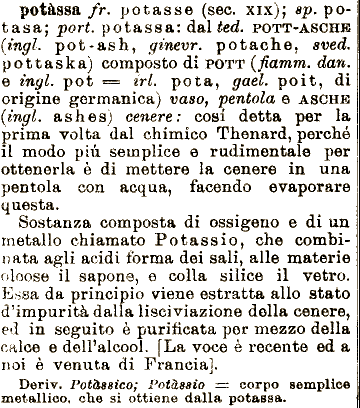 potàssa fr. potasse (sec. XIX); sp. po-
tasa; port. potassa: dal ted. POTT-ASCHE
(ingl. pot-ash, ginevr. potache, sved.
pottaska) composto di POTT (fiamm. dan.
e ingl. pot = irl. pota, gael. poit, di
origine germanica) vaso, pentola e ASCHE
(ingl. ashes) cenere: così detta per la
prima volta dal chimico Thenard, perché
il modo più semplice e rudimentale per
ottenerla è di mettere la cenere in una
pentola con acqua, facendo evaporare
questa.
Sostanza composta di ossigeno e di un
metallo chiamato Potassio, che combi-
nata agli acidi forma dei sali, alle materie
oloose il sapone, e colla silice il vetro.
Essa da principio viene estratta allo stato
d'impurità dalla lisciviazione della cenere,
ed in seguito è purificata por mezzo della
calce e dell'alcool. [La voce è recente ed a
noi è venuta di Francia].
Deriv. Potàssico; Potàssio = corpo semplice
metallico, che si ottiene dalla potassa.